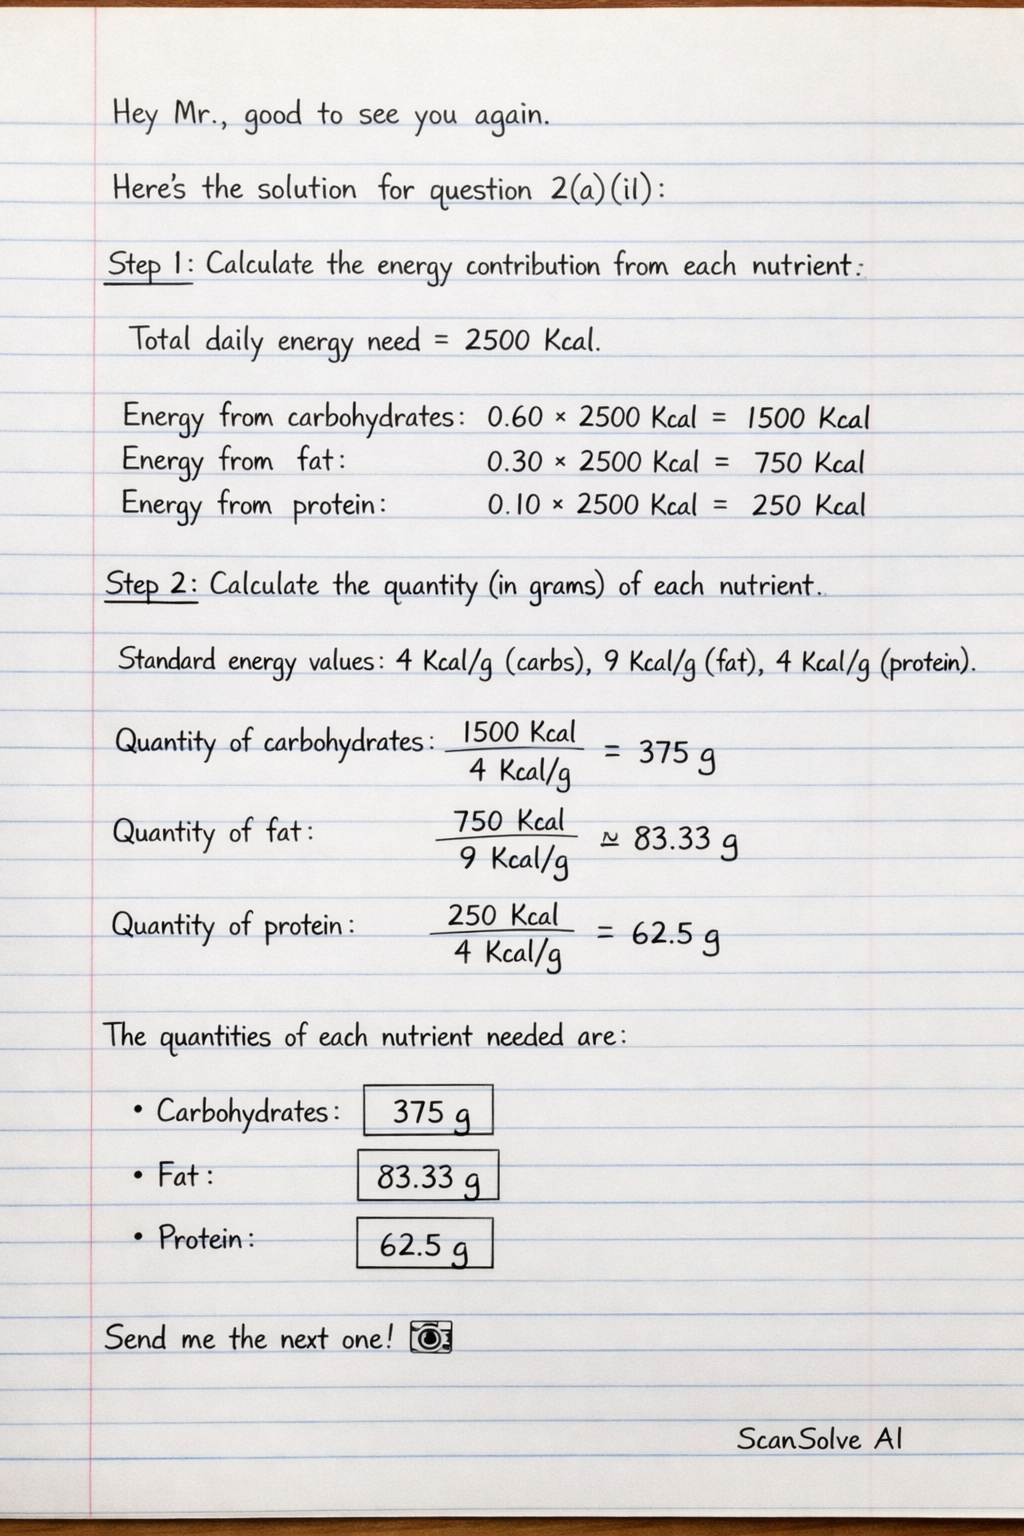 Hey Mr., good to see you again.
Here's the solution for question 2(a)(il):
Step 1: Calculate the energy contribution from each nutrient:
Total daily energy need = 2500 Kcal.
Energy from carbohydrates: 0.60 × 2500 Kcal = 1500 Kcal
Energy from fat: 0.30 × 2500 Kcal = 750 Kcal
Energy from protein: 0.10 × 2500 Kcal = 250 Kcal
Step 2: Calculate the quantity (in grams) of each nutrient.
Standard energy values: 4 Kcal/g (carbs), 9 Kcal/g (fat), 4 Kcal/g (protein).
Quantity of carbohydrates: 1500 Kcal / 4 Kcal/g = 375 g
Quantity of fat: 750 Kcal / 9 Kcal/g ≃ 83.33 g
Quantity of protein: 250 Kcal / 4 Kcal/g = 62.5 g
The quantities of each nutrient needed are:
• Carbohydrates: 375 g
• Fat: 83.33 g
• Protein: 62.5 g
Send me the next one!
ScanSolve AI